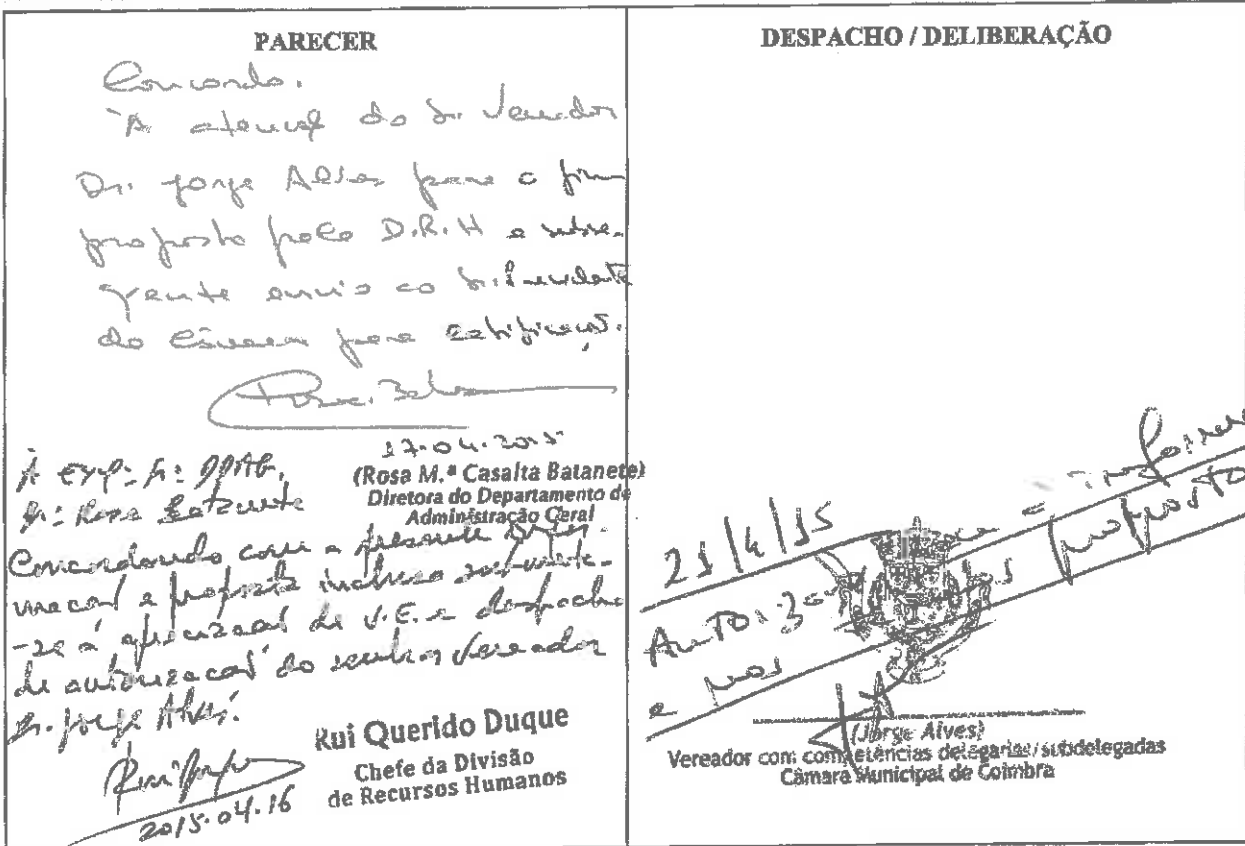 PARECER
Concordo.
À atenção do Sr. Vereador
Dr. Jorge Alves para o fim
proposto pelo D.R.H e subse-
quente envio ao Sr. Presidente
da Câmara para ratificação.
17-04-2015
(Rosa M.ª Casalta Batanete)
Diretora do Departamento de
Administração Geral
À Exmª Srª DDAG,
Drª Rosa Batanete
Concordando com a presente infor-
mação e proposta inclusa submete-
-se à apreciação de V.E. e despacho
de autorização do senhor Vereador
Dr. Jorge Alves.
Rui Querido Duque
Chefe da Divisão
de Recursos Humanos
2015.04.16
DESPACHO / DELIBERAÇÃO
21/4/15
Autorizo
e nos propostos
(Jorge Alves)
Vereador com competências delegadas/subdelegadas
Câmara Municipal de Coimbra